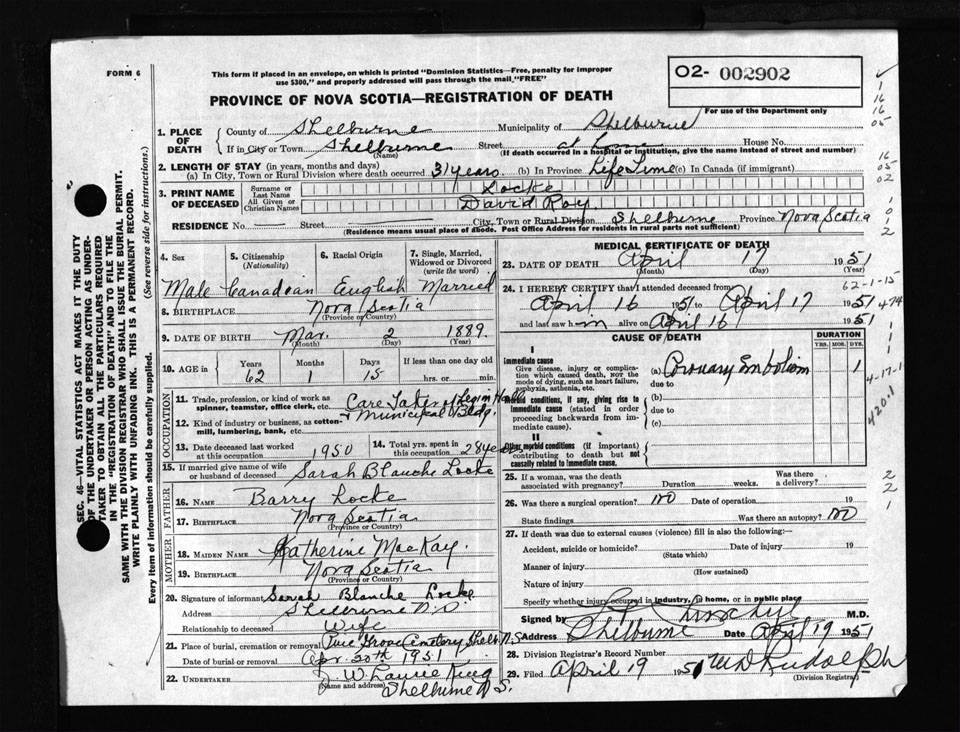 FORM 6
This form if placed in an envelope, on which is printed "Dominion Statistics—Free, penalty for improper
use $300," and properly addressed will pass through the mail "FREE"
O2- 002902
For use of the Department only
PROVINCE OF NOVA SCOTIA—REGISTRATION OF DEATH
1. PLACE OF DEATH
County of Shelburne Municipality of Shelburne
If in City or Town Shelburne Street at home House No.
(Name) (If death occurred in a hospital or institution, give the name instead of street and number)
2. LENGTH OF STAY (in years, months and days)
(a) In City, Town or Rural Division where death occurred 31 years (b) In Province Life Time (c) In Canada (if immigrant)
3. PRINT NAME OF DECEASED
Surname or Last Name Locke
All Given or Christian Names David Roy
RESIDENCE No. — Street — City, Town or Rural Division Shelburne Province Nova Scotia
(Residence means usual place of abode. Post Office Address for residents in rural parts not sufficient)
4. Sex 5. Citizenship (Nationality) 6. Racial Origin 7. Single, Married, Widowed or Divorced (write the word)
Male Canadian English Married
8. BIRTHPLACE Nova Scotia
(Province or Country)
9. DATE OF BIRTH Mar. 2 1889
(Month) (Day) (Year)
10. AGE in Years Months Days If less than one day old
62 1 15 hrs. or min.
OCCUPATION
11. Trade, profession, or kind of work as spinner, teamster, office clerk, etc. Care Taker of Legion Hall
& Municipal Bldg.
12. Kind of industry or business, as cotton-mill, lumbering, bank, etc.
13. Date deceased last worked at this occupation 1950
14. Total yrs. spent in this occupation 28 years
15. If married give name of wife or husband of deceased Sarah Blanche Locke
FATHER
16. NAME Barry Locke
17. BIRTHPLACE Nova Scotia
(Province or Country)
MOTHER
18. MAIDEN NAME Katherine MacKay.
19. BIRTHPLACE Nova Scotia
(Province or Country)
20. Signature of informant Sarah Blanche Locke
Address Shelburne N.S.
Relationship to deceased Wife
21. Place of burial, cremation or removal Pine Grove Cemetery Shelb. N.S.
Date of burial or removal Apr. 20th 1951
22. UNDERTAKER W. Laurie King
(Name and address) Shelburne N.S.
MEDICAL CERTIFICATE OF DEATH
23. DATE OF DEATH April 17 1951
(Month) (Day) (Year)
24. I HEREBY CERTIFY that I attended deceased from
April 16 1951 to April 17 1951
and last saw him alive on April 16 1951
CAUSE OF DEATH
DURATION
YRS. MOS. DYS.
I
Immediate cause
Give disease, injury or complication which caused death, NOT the mode of dying, such as heart failure, asphyxia, asthenia, etc.
(a) Coronary Embolism 1
due to
Morbid conditions, if any, giving rise to immediate cause (stated in order proceeding backwards from immediate cause).
(b)
due to
(c)
II
Other morbid conditions (if important) contributing to death but not causally related to immediate cause.
25. If a woman, was the death associated with pregnancy? Duration weeks. Was there a delivery?
26. Was there a surgical operation? no Date of operation 19
State findings Was there an autopsy? no
27. If death was due to external causes (violence) fill in also the following:—
Accident, suicide or homicide? Date of injury 19
(State which)
Manner of injury
(How sustained)
Nature of injury
Specify whether injury occurred in industry, in home, or in public place
Signed by M.D.
Address Shelburne Date April 19 1951
28. Division Registrar's Record Number
29. Filed April 19 1951 W D Rudolph
(Division Registrar)
SEC. 46—VITAL STATISTICS ACT MAKES IT THE DUTY
OF THE UNDERTAKER OR PERSON ACTING AS UNDER-
TAKER TO OBTAIN ALL THE PARTICULARS REQUIRED
IN THE "REGISTRATION OF DEATH" AND TO FILE THE
SAME WITH THE DIVISION REGISTRAR WHO SHALL ISSUE THE BURIAL PERMIT.
WRITE PLAINLY WITH UNFADING INK. THIS IS A PERMANENT RECORD.
Every item of information should be carefully supplied. (See reverse side for instructions.)
1
16
16
05
16
05
02
1
0
1
2
62-1-15
474
1
1
1
4-17-1
420.1
2
2
1